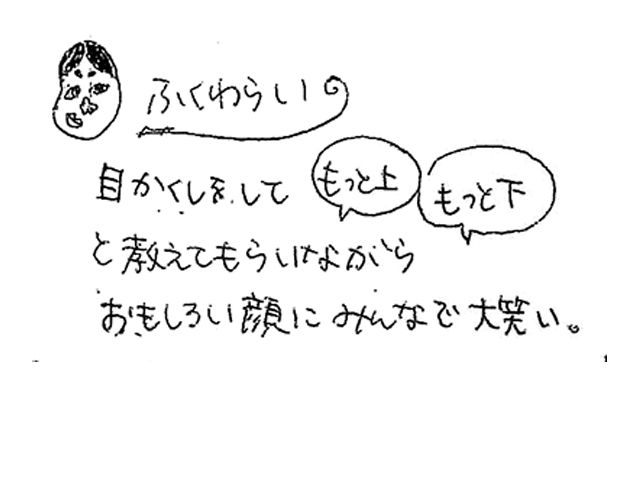 ふくわらい
目かくしをして もっと上 もっと下
と教えてもらいながら
おもしろい顔にみんなで大笑い。